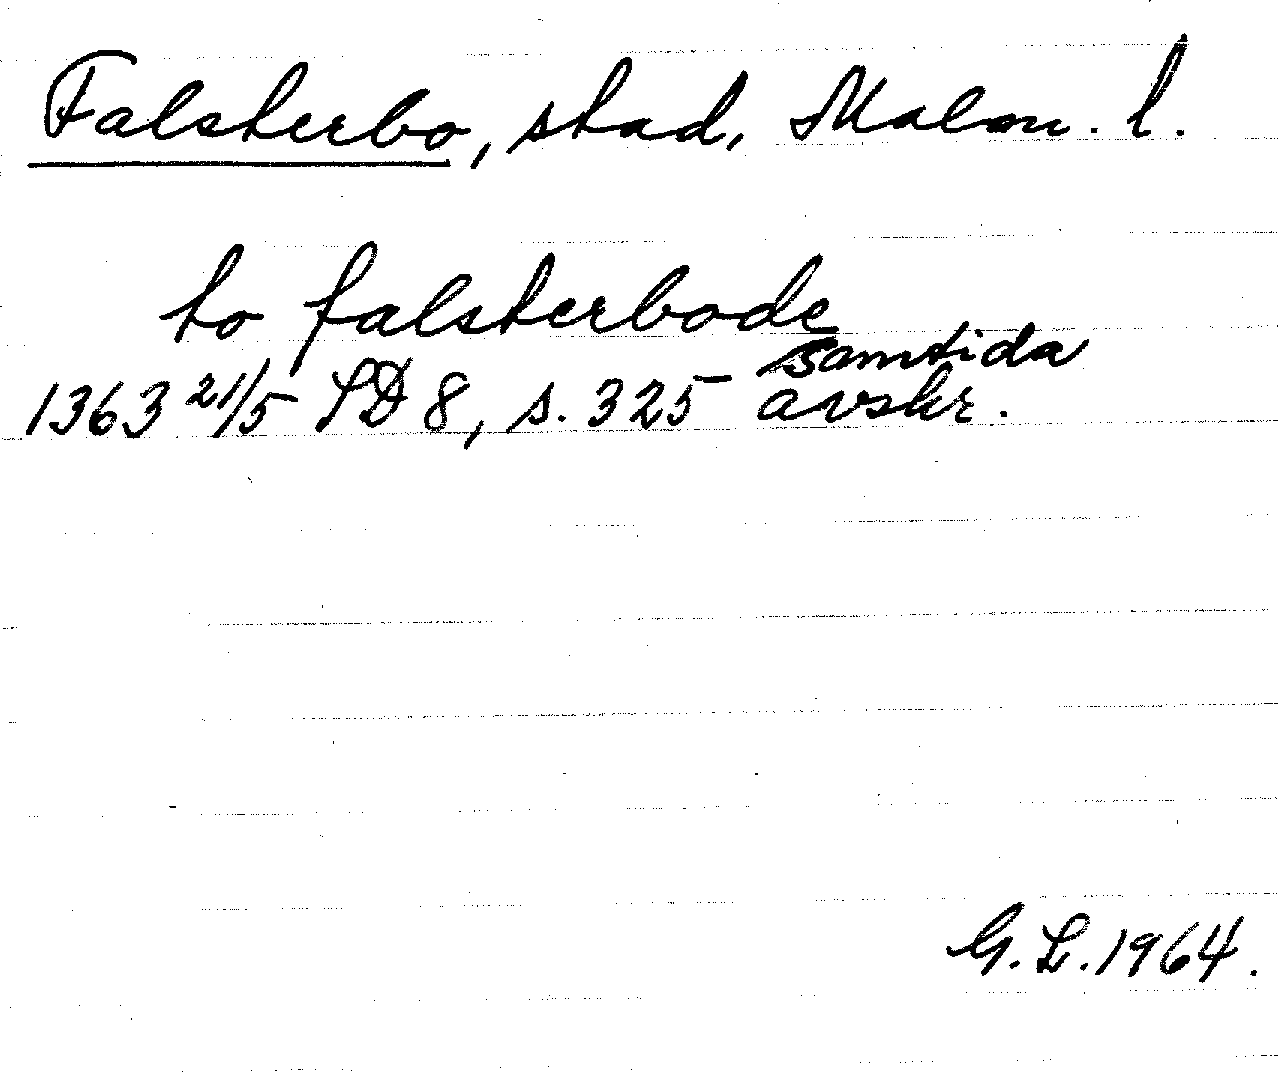 Falsterbo, stad, Malm. l.
to falsterbode
samtida
1363 21/5 SD 8, s. 325 avskr.
G. L. 1964.